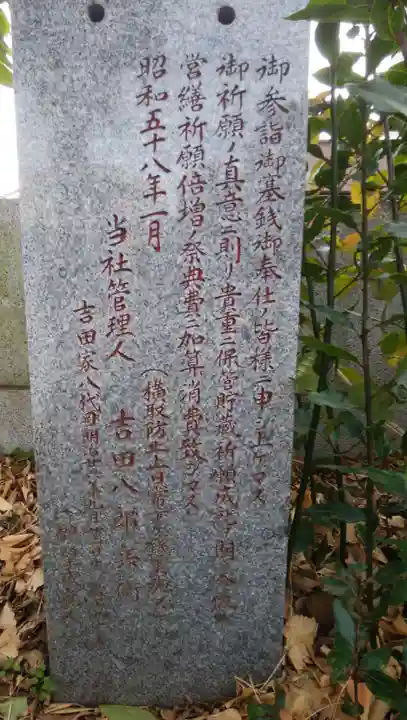 御参詣御塞銭御奉仕ノ皆様ニ申シ上ケマス
御祈願ノ真意ニ則リ貴重ニ保管貯蔵祈願成
営繕祈願倍増ノ祭典費ニ加算消費致シマス
昭和五十八年一月
(横取防止上日常
当社管理人 吉田八郎兵衛
吉田家八代目明治